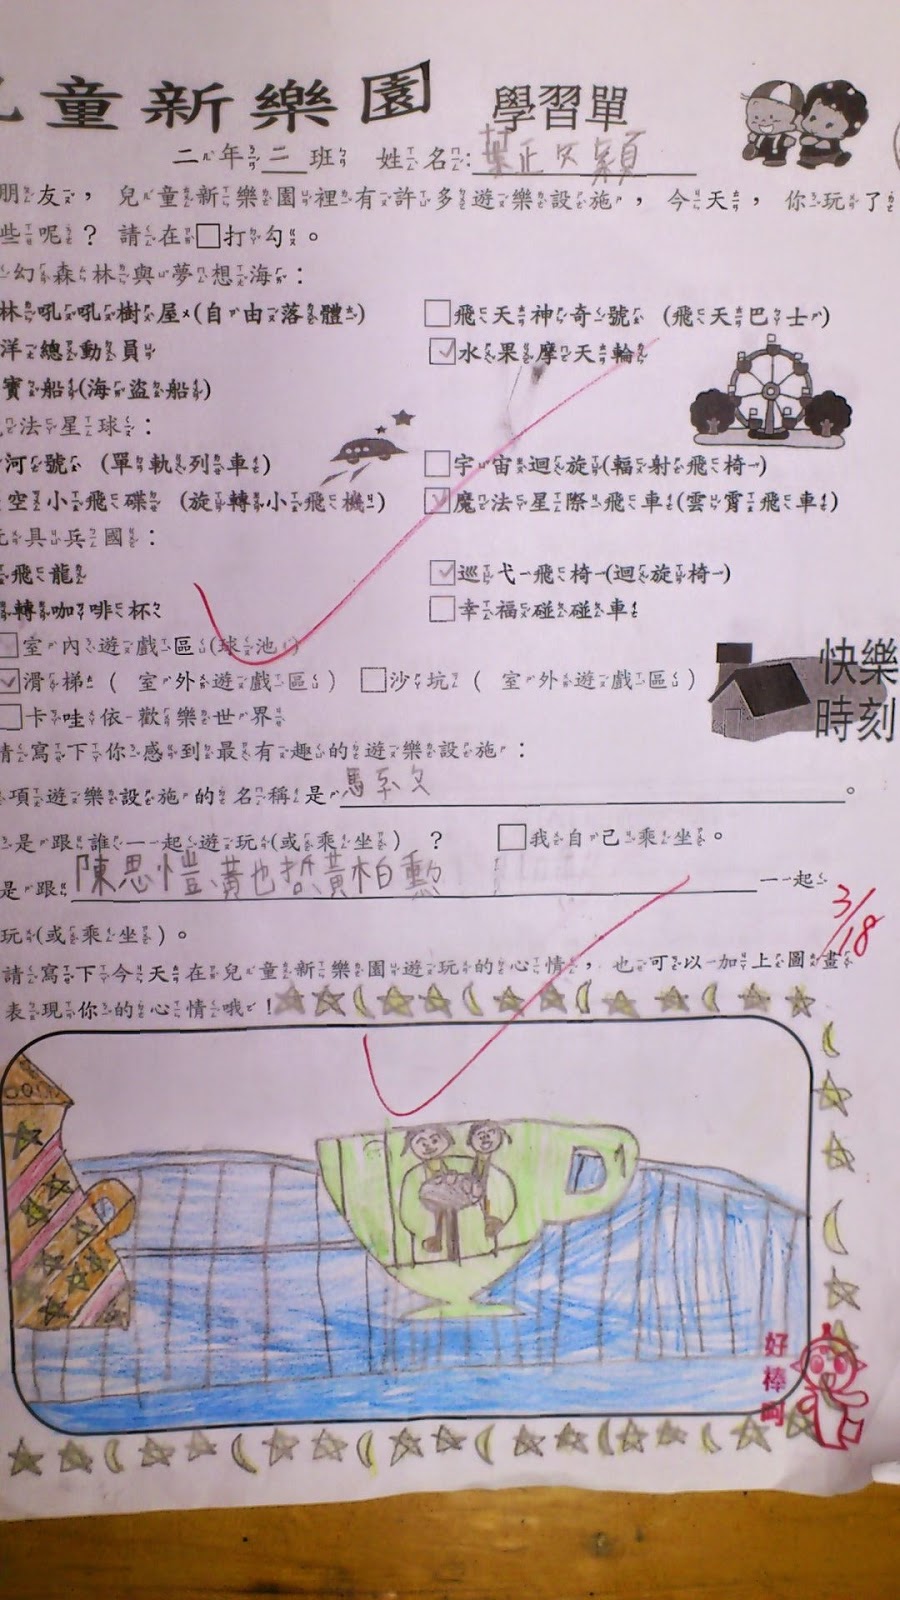 兒童新樂園 學習單
二年二班 姓名:葉政穎
朋友，兒童新樂園裡有許多遊樂設施，今天，你玩了
些呢？請在□打勾。
幻森林與夢想海：
林吼吼樹屋(自由落體) □飛天神奇號 (飛天巴士)
洋總動員 ☑水果摩天輪
寶船(海盜船)
法星球：
河號 (單軌列車) □宇宙迴旋(輻射飛椅)
空小飛碟 (旋轉小飛機) ☑魔法星際飛車(雲霄飛車)
玩具兵國：
飛龍 ☑巡弋飛椅(迴旋椅)
轉咖啡杯 □幸福碰碰車
□室內遊戲區(球池)
☑滑梯 ( 室外遊戲區) □沙坑 ( 室外遊戲區)
快樂
時刻
□卡哇依歡樂世界
請寫下你感到最有趣的遊樂設施：
項遊樂設施的名稱是。
是跟誰一起遊玩(或乘坐) ？ □我自己乘坐。
是跟陳思愷黃也哲黃柏勳一起
玩(或乘坐)。
3/18
請寫下今天在兒童新樂園遊玩的心情，也可以加上圖畫
表現你的心情哦！
好棒呵